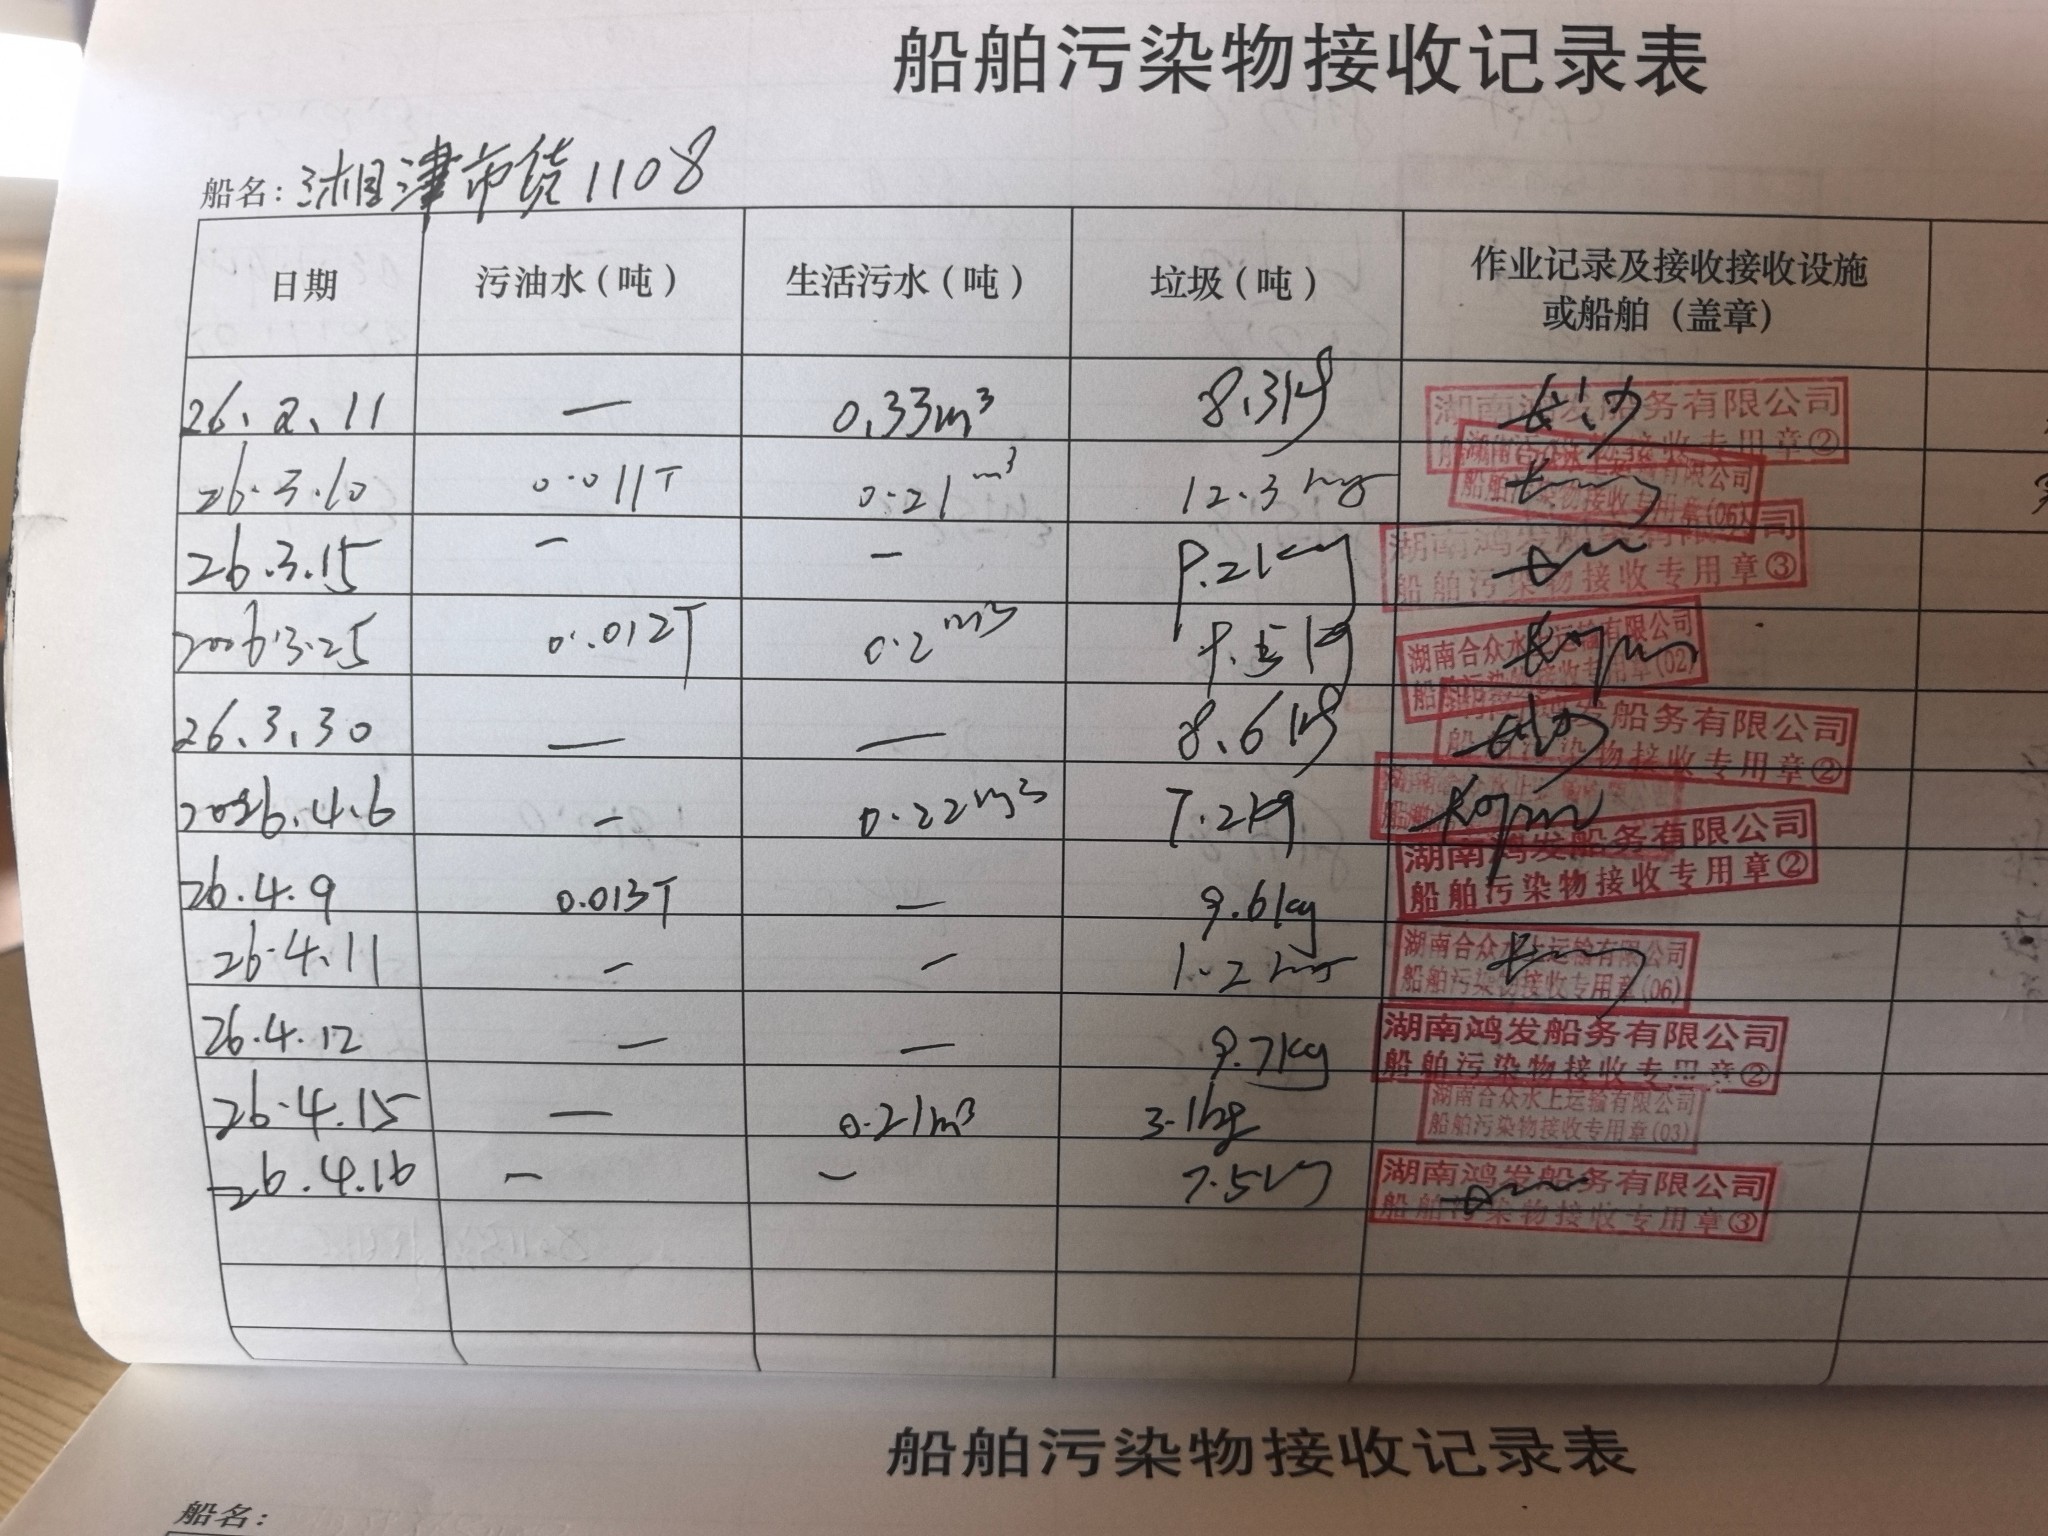 船舶污染物接收记录表
船名：湘津市货1108
日期 污油水（吨） 生活污水（吨） 垃圾（吨） 作业记录及接收接收设施
或船舶（盖章）
26.2.11 — 0.33m³ 8.3kg 长沙
湖南鸿发船务有限公司
船舶污染物接收专用章②
26.3.10 0.011T 0.21m³ 12.3kg
湖南合众水上运输有限公司
船舶污染物接收专用章(06)
26.3.15 — — 9.21kg
湖南鸿发船务有限公司
船舶污染物接收专用章③
2026.3.25 0.012T 0.2m³ 9.5kg
湖南合众水上运输有限公司
船舶污染物接收专用章(02)
26.3.30 — — 8.6kg 长沙
湖南鸿发船务有限公司
船舶污染物接收专用章②
2026.4.6 — 0.22m³ 7.2kg
26.4.9 0.013T — 9.6kg
湖南鸿发船务有限公司
船舶污染物接收专用章②
26.4.11 — — 1.2kg
湖南合众水上运输有限公司
船舶污染物接收专用章(06)
26.4.12 — — 9.7kg
湖南鸿发船务有限公司
船舶污染物接收专用章②
26.4.15 — 0.21m³ 3.1kg
湖南合众水上运输有限公司
船舶污染物接收专用章(03)
26.4.16 — — 7.5kg
湖南鸿发船务有限公司
船舶污染物接收专用章③
船舶污染物接收记录表
船名：